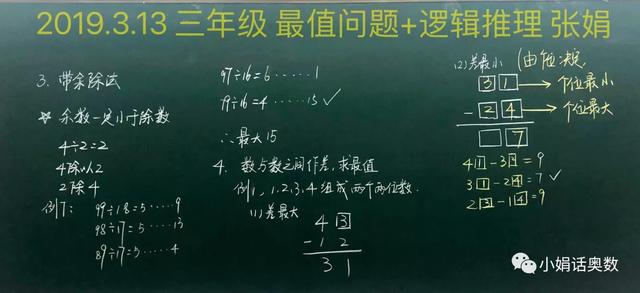 2019.3.13 三年级 最值问题+逻辑推理 张娟
3. 带余除法
☆ 余数一定小于除数
4÷2=2
4除以2
2除4
例7: 99÷18=5……9
98÷17=5……13
89÷17=5……4
97÷16=6……1
79÷16=4……15 ✓
∴最大15
4. 数与数之间作差,求最值
例1, 1.2.3.4组成两个两位数.
(1)差最大
4 3
- 1 2
3 1
(2)差最小 (由十位决定
3 1 → 个位最小
- 2 4 → 个位最大
7
41-32=9
31-24=7 ✓
23-14=9
小娟话奥数